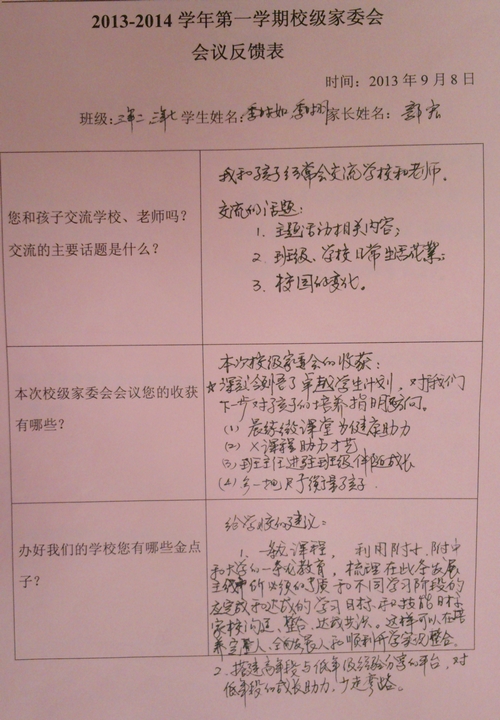 2013-2014 学年第一学期校级家委会
会议反馈表
时间：2013 年 9 月 8 日
班级: 三年二 三年七 学生姓名: 家长姓名:
您和孩子交流学校、老师吗？
交流的主要话题是什么？
我和孩子经常会交流学校和老师。
交流的话题：
1. 主题活动相关内容；
2. 班级、学校日常生活花絮；
3. 校园的变化。
本次校级家委会会议您的收获
有哪些？
本次校级家委会的收获：
深刻领会了卓越学生计划，对我们
下一步对孩子们的培养指明方向。
(1) 晨练微课堂为健康助力
(2) X课程助力才艺
(3) 班主任进驻班级伴随成长
(4) 多一把尺子衡量孩子
办好我们的学校您有哪些金点
子？
给学校的建议：
1. 一贯课程，利用附小、附中
和大学的一条龙教育，梳理在此条发展
主线中所必须的素质和不同学习阶段的
应完成和达成的学习目标、和技能目标
家校沟通、整合、达成共识。这样可以在培
养全人、全面发展人和顺利升学实现整合。
2. 搭建高年段与低年级经验分享的平台，对
低年段的成长助力，少走弯路。